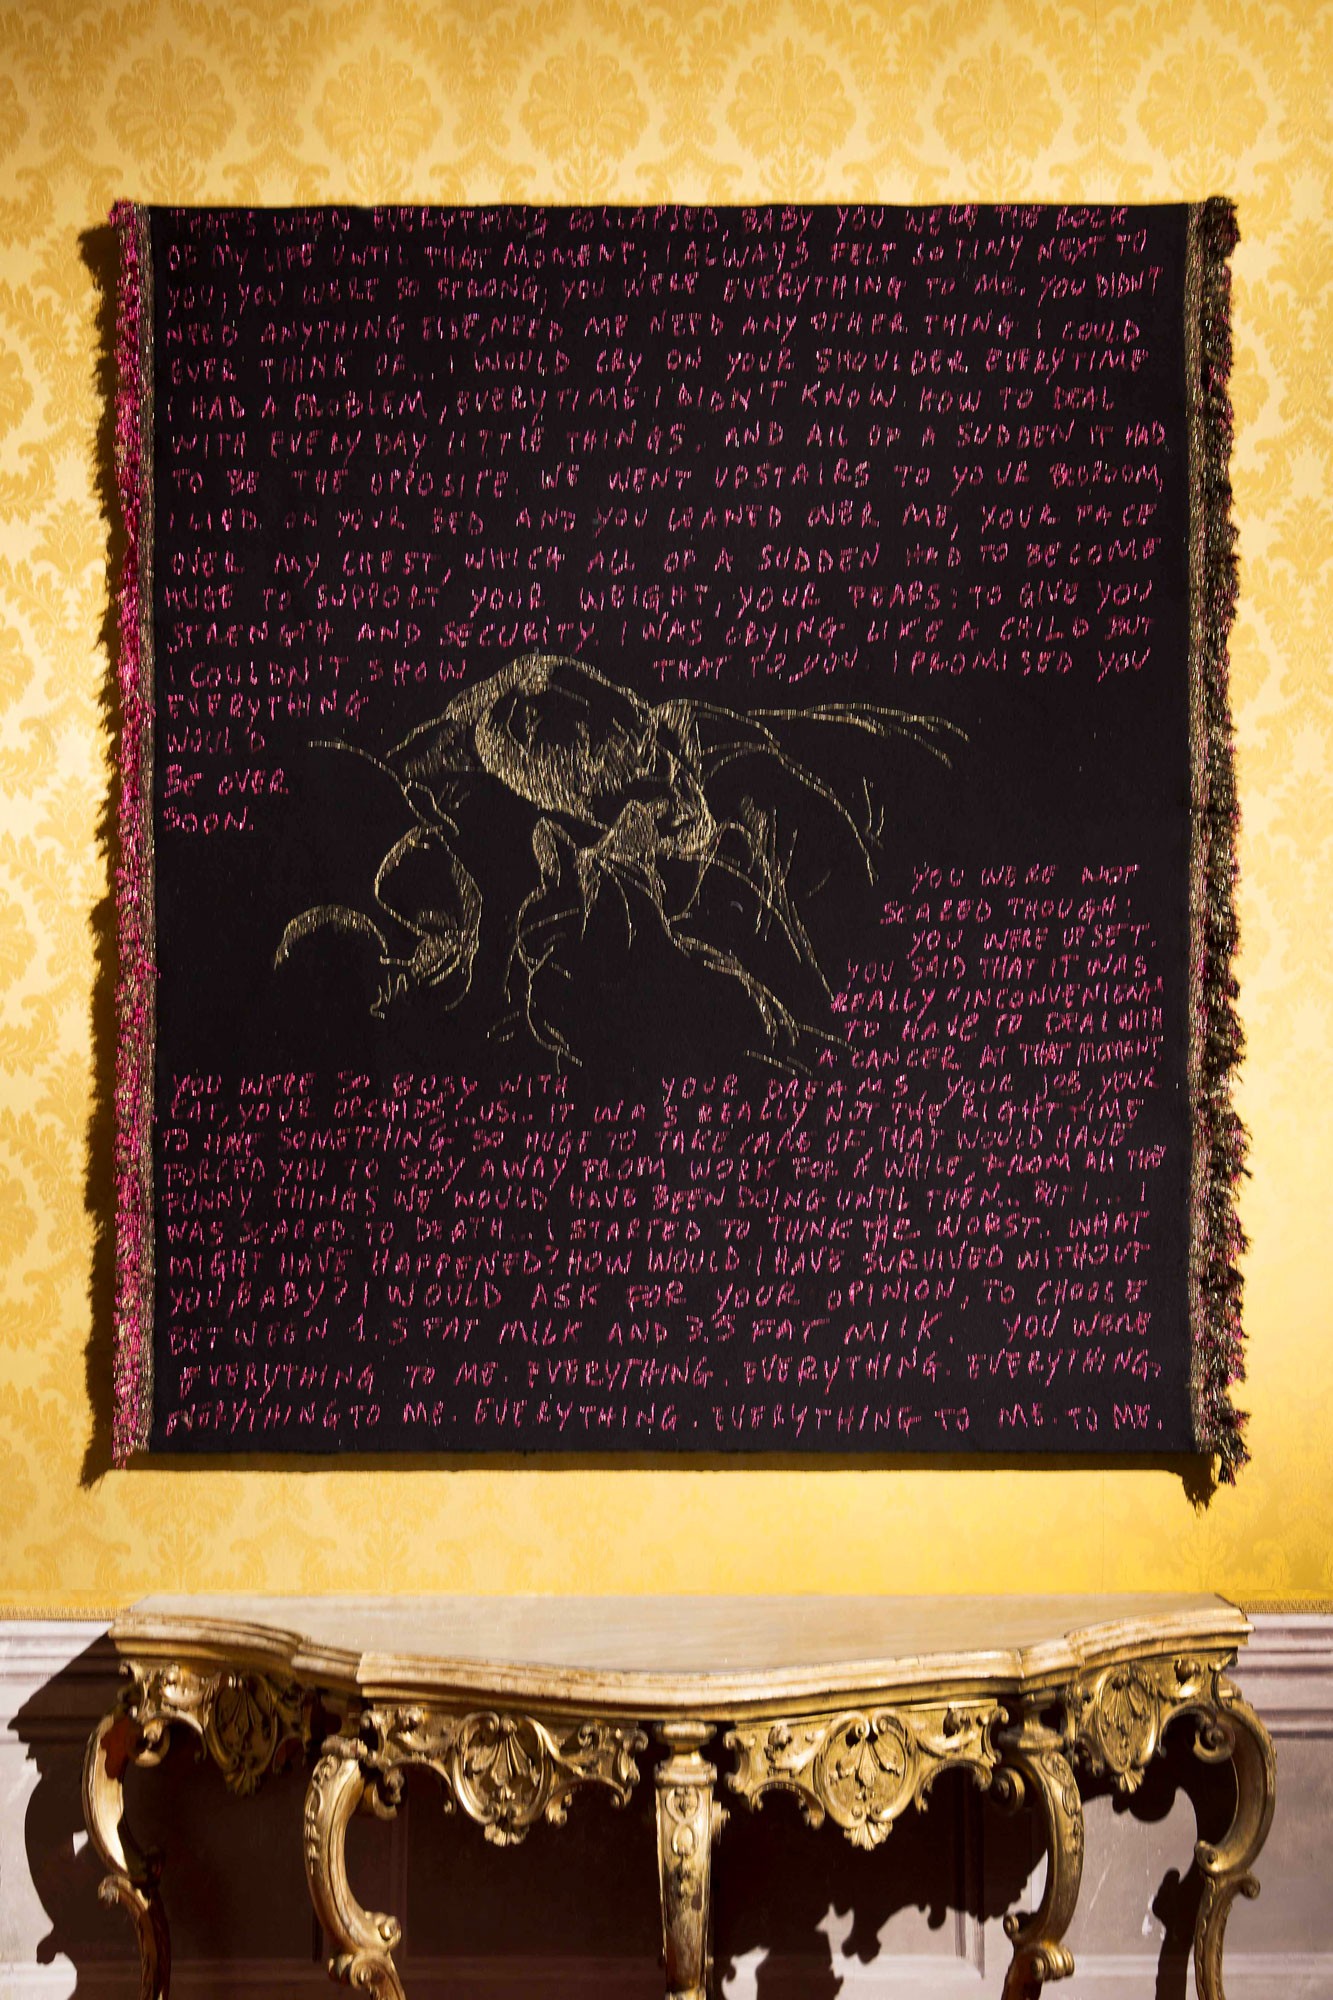 THAT'S WHEN EVERYTHING COLLAPSED, BABY YOU WERE THE ROCK
OF MY LIFE UNTIL THAT MOMENT, I ALWAYS FELT SO TINY NEXT TO
YOU, YOU WERE SO STRONG, YOU WERE EVERYTHING TO ME. YOU DIDN'T
NEED ANYTHING ELSE, NEED ME NEED ANY OTHER THING I COULD
EVER THINK OF... I WOULD CRY ON YOUR SHOULDER EVERYTIME
I HAD A PROBLEM, EVERYTIME I DIDN'T KNOW HOW TO DEAL
WITH EVERYDAY LITTLE THINGS. AND ALL OF A SUDDEN IT HAD
TO BE THE OPPOSITE. WE WENT UPSTAIRS TO YOUR BEDROOM,
I LIED ON YOUR BED AND YOU LEANED OVER ME, YOUR FACE
OVER MY CHEST, WHICH ALL OF A SUDDEN HAD TO BECOME
HUGE TO SUPPORT YOUR WEIGHT, YOUR FEARS: TO GIVE YOU
STRENGTH AND SECURITY I WAS CRYING LIKE A CHILD BUT
I COULDN'T SHOW THAT TO YOU I PROMISED YOU
EVERYTHING
WOULD
BE OVER
SOON.
YOU WERE NOT
SCARED THOUGH:
YOU WERE UPSET.
YOU SAID THAT IT WAS
REALLY "INCONVENIENT"
TO HAVE TO DEAL WITH
A CANCER AT THAT MOMENT.
YOU WERE SO BUSY WITH YOUR DREAMS YOUR JOB, YOUR
CAT, YOUR ORCHIDS, US... IT WAS REALLY NOT THE RIGHT TIME
TO HAVE SOMETHING SO HUGE TO TAKE CARE OF THAT WOULD HAVE
FORCED YOU TO STAY AWAY FROM WORK FOR A WHILE, FROM ALL THE
FUNNY THINGS WE WOULD HAVE BEEN DOING UNTIL THEN... BUT I... I
WAS SCARED TO DEATH... I STARTED TO THINK THE WORST. WHAT
MIGHT HAVE HAPPENED? HOW WOULD I HAVE SURVIVED WITHOUT
YOU, BABY? I WOULD ASK FOR YOUR OPINION, TO CHOOSE
BETWEEN 1.5 FAT MILK AND 3.5 FAT MILK. YOU WERE
EVERYTHING TO ME. EVERYTHING. EVERYTHING. EVERYTHING.
EVERYTHING TO ME. EVERYTHING. EVERYTHING TO ME. TO ME.